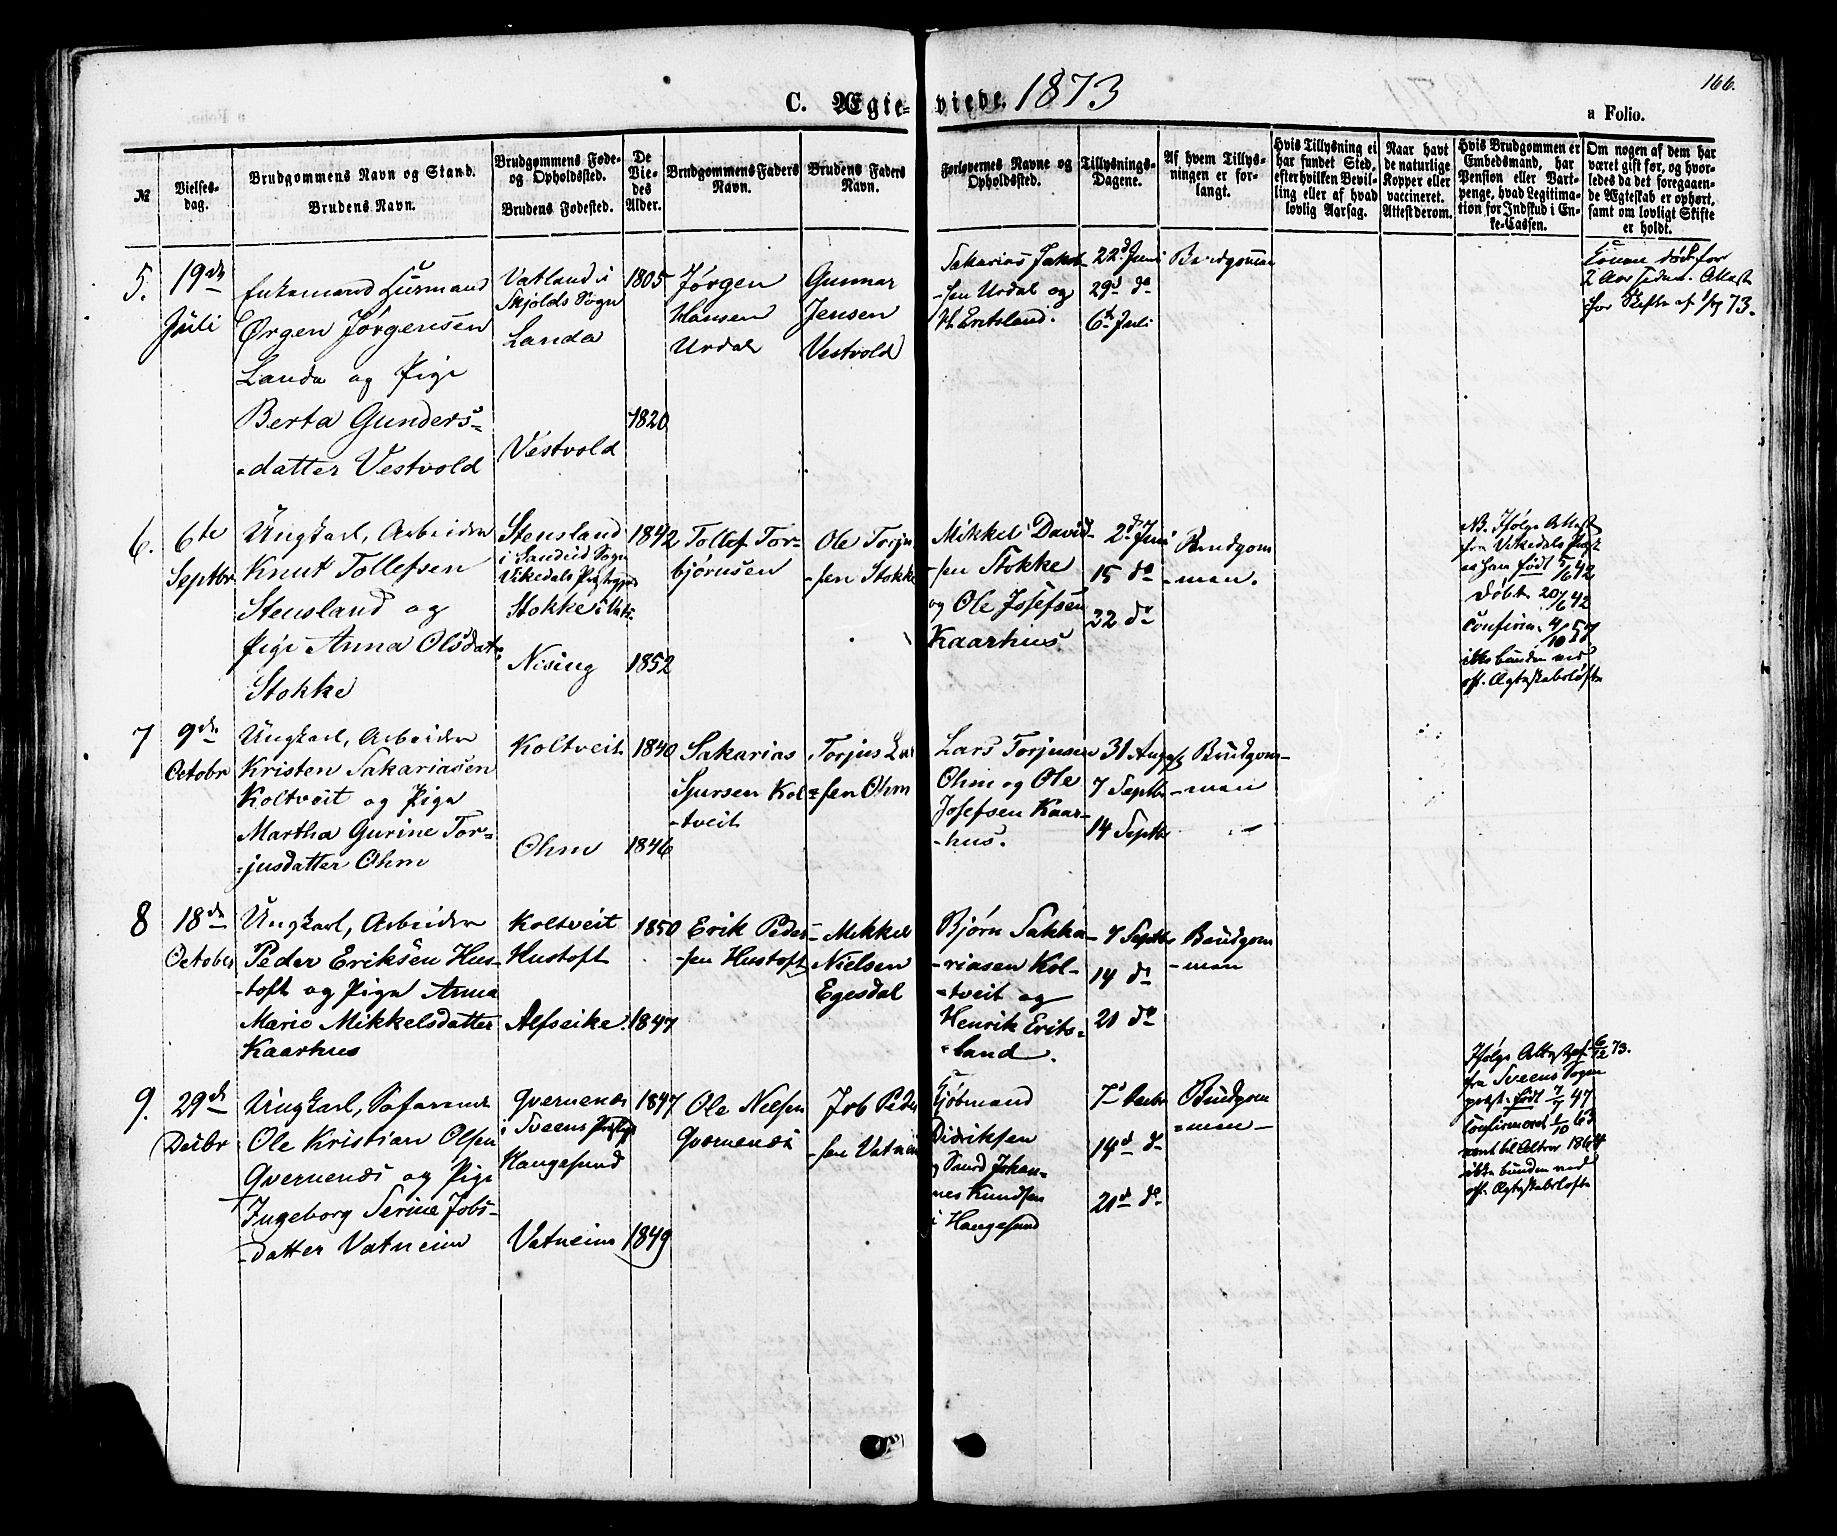 166.
C. Ægte- viede. 1873
a Folio.
№
Vielses-
dag.
Brudgommens Navn og Stand.
Brudens Navn.
Brudgommens Føde-
og Opholdssted.
Brudens Fødested.
De
Vie-
des
Alder.
Brudgommens Faders
Navn.
Brudens Faders
Navn.
Forlovernes Navne og
Opholdssted.
Tillysnings-
Dagene.
Af hvem Tillys-
ningen er for-
langt.
Hvis Tillysning ei
har fundet Sted,
efter hvilken Bevil-
ling eller af hvad
lovlig Aarsag.
Naar havt
de naturlige
Kopper eller
vaccineret.
Attest derom.
Hvis Brudgommen er
Embedsmand, har
Pension eller Vart-
penge, hvad Legitima-
tion for Indskud i En-
ke-Cassen.
Om nogen af dem har
været gift før, og hvor-
ledes da det foregaaen-
de Ægteskab er ophørt,
samt om lovligt Skifte
er holdt.
5.
19de
Juli
Enkemand Husmand
Ørgen Jørgensen
Landa og Pige
Berta Gunders-
-datter Vestvold
Vatland i
Skjolds Sogn
Landa
Vestvold
1805
1820
Jørgen
Hansen
Urdal
Gunnar
Jensen
Vestvold
Sakarias Jakob-
-sen Urdal og
H. Eritsland.
22d Juni
29d do
6te Juli
Brudgoman
Konen død for
2 Aar siden. Attest
for Skifte af 73.
6.
6te
Septbr
Ungkarl, Arbeider
Knut Tollefsen
Stensland og
Pige Anna Olsdat-
Stokke
Stensland
i Sandeid Sogn
Vikedals Præstegj
Stokke i Vats
Nising
1842
1852
Tollef Tor-
bjørnsen
Ole Torju
-sen Stokke
Mikkel David-
-sen Stokke
og Ole Josefsen
Kaarhus
2d Juni
15 do
22 do
Brudgom
-man.
NB. Ifølge Attest
fra Vikedals Præst
er han født 5/6 42
Døbt 20/6 42
Confirm. 4/10 57
ikke bunden ved
off. Ægteskabsløfte
7
9de
Octobr
Ungkarl, Arbeider
Kristen Sakariasen
Koltveit og Pige
Martha Gurine Tor-
-jusdatter Ohm
Koltveit
Ohm
1840
1846
Sakarias
Sjursen Kol-
-tveit
Torjus Lar
-sen Ohm
Lars Torjusen
Ohm og Ole
Josefsen Kaar-
-hus.
31 August
7 Septbr
14 Septbr
Brudgom-
-man
8
18de
October
Ungkarl, Arbeider
Peder Eriksen Hus-
-toft og Pige Anna
Marie Mikkelsdatter
Kaarhus
Koltveit
Hustoft
Alfseike
1850
1847
Erik Peder-
-sen Hustoft
Mikkel
Nielsen
Egesdal
Bjørn Sakka-
-riasen Kol-
-tveit og
Henrik Erits-
-land.
7 Septbr
14 do
21 do
Brudgom
-man
9.
29de
Decbr
Ungkarl, Søfarende
Ole Kristian Olsen
Qvernenæs og Pige
Ingeborg Serine Jobs-
-datter Vatneim
Qvernenæs
i Sveens Præstegj
Haugesund
Vatneim
1847
1849
Ole Nielsen
Qvernenæs
Job Peder
-sen Vatneim
Kjøbmand
Didriksen
og Johan-
nes Knudsen
i Haugesund
7de Decbr
14d do
21d do
Brudgom
-man-
Ifølge Attest af 6/12 73.
fra Sveens Sogne
præst født 7/7 47
Confirmeret 1/10 63
vært til Alters 1864
ikke bunden ved
off. Ægteskabsløfte